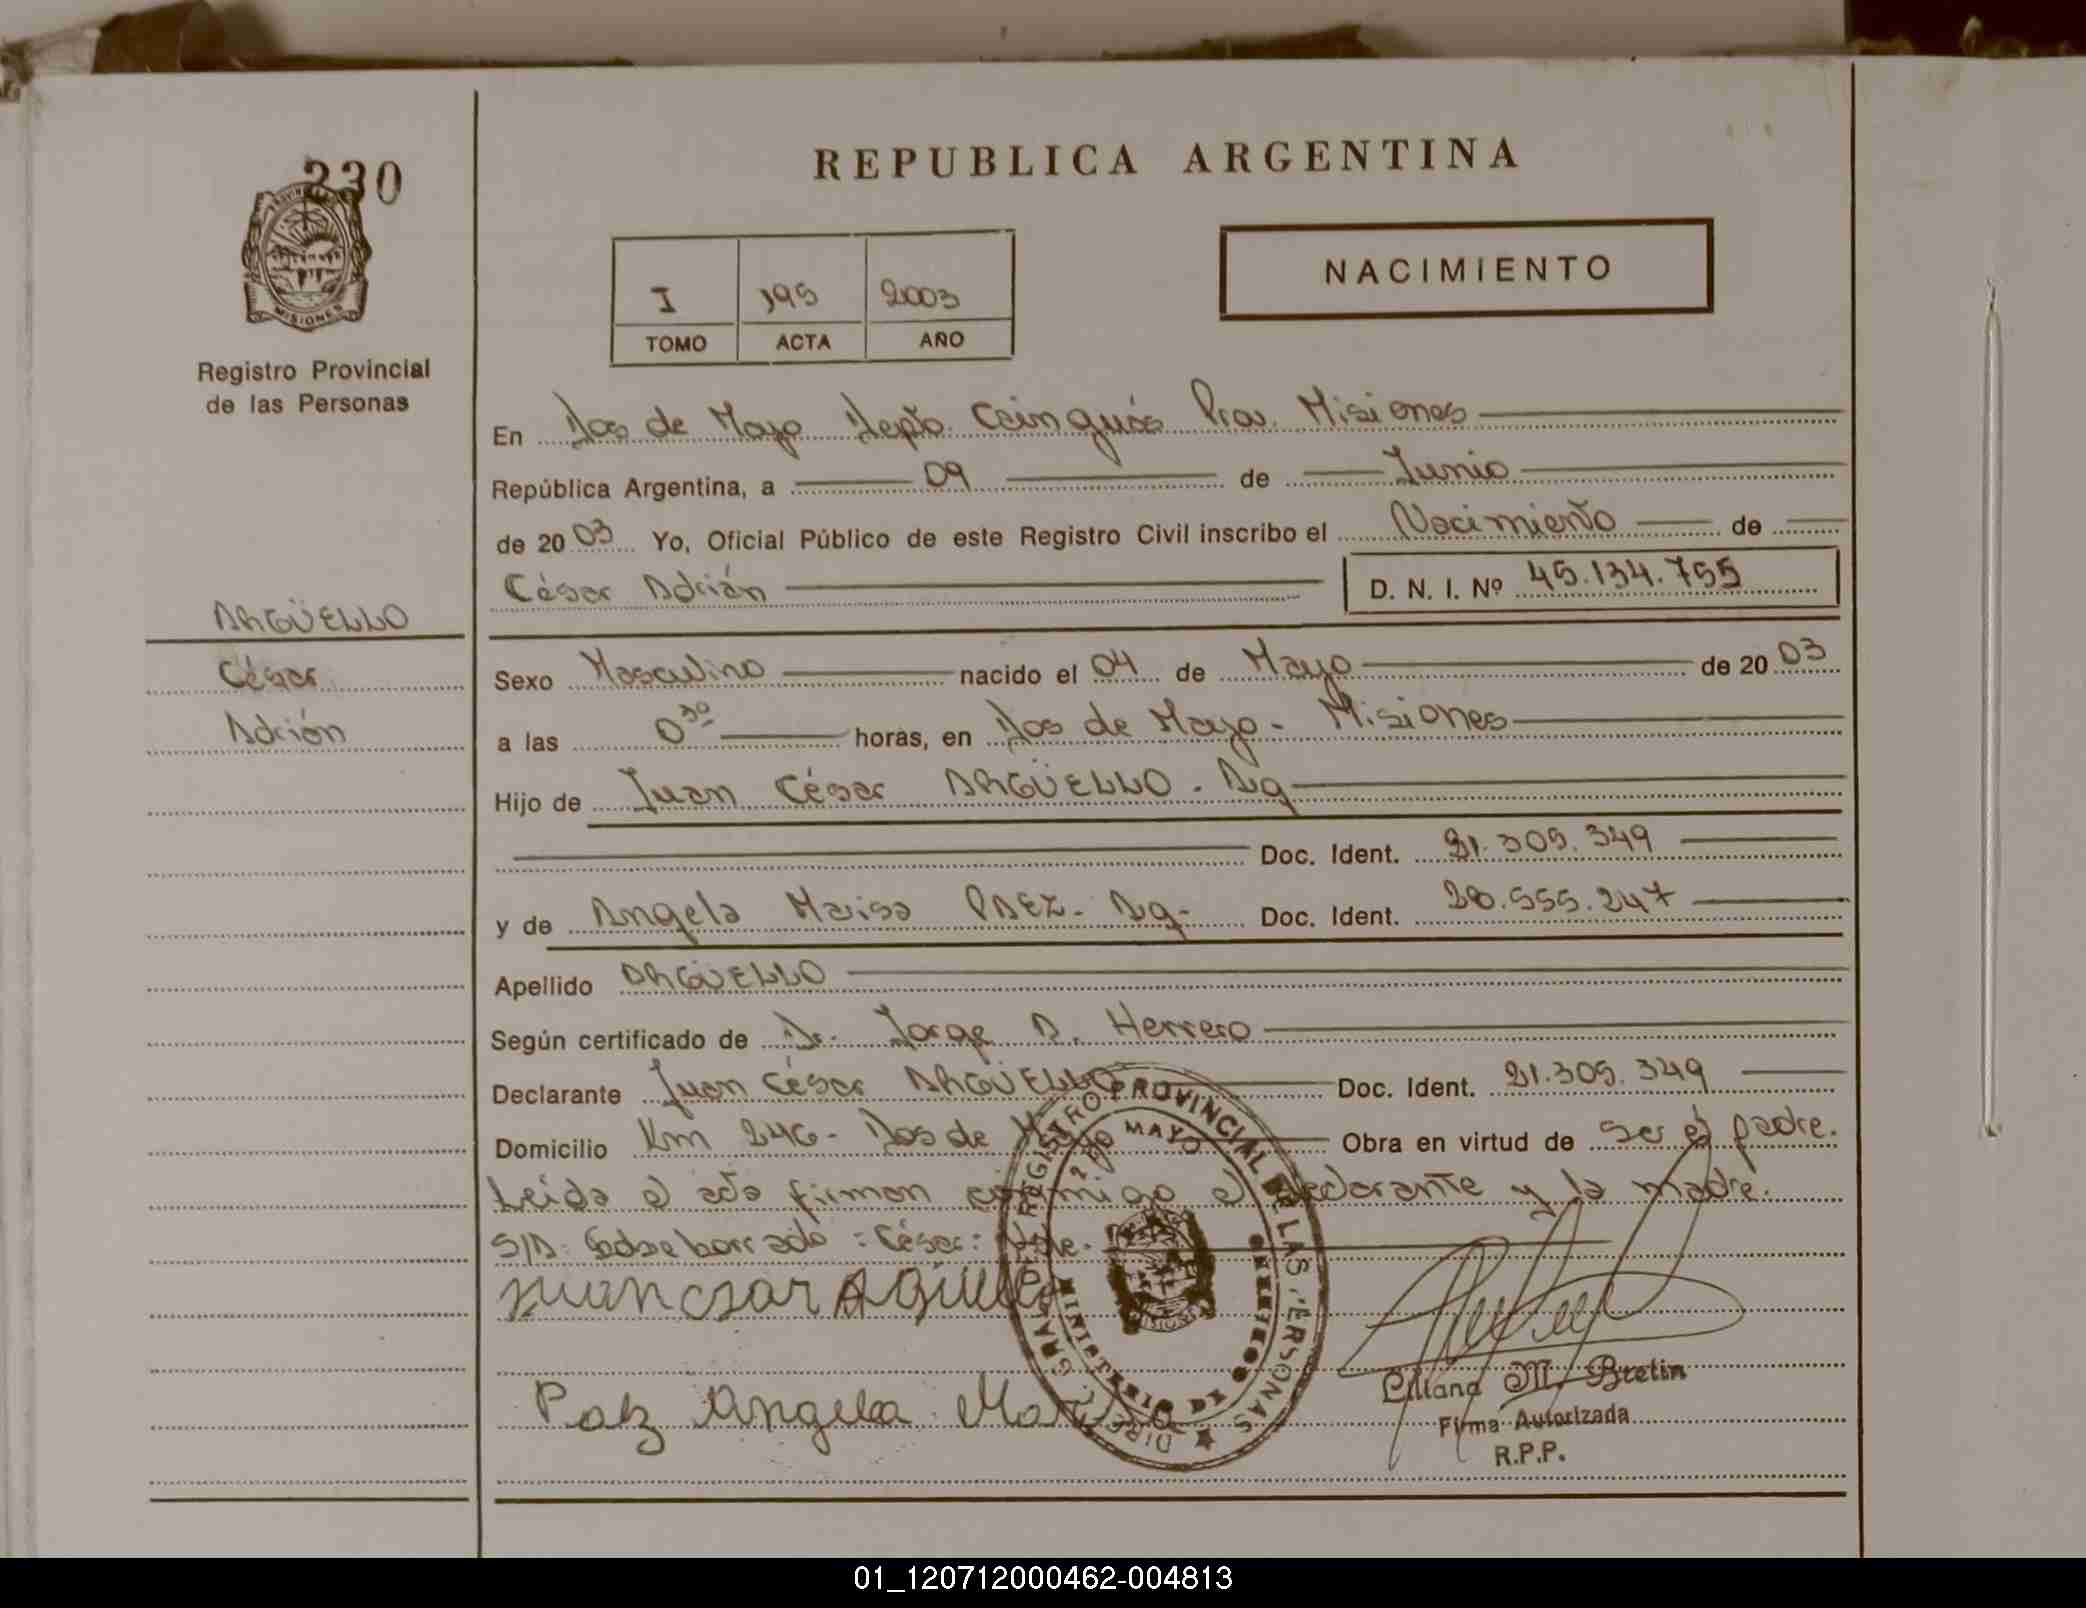 230
REPUBLICA ARGENTINA
NACIMIENTO
I 195 2003
TOMO ACTA AÑO
MISIONES
Registro Provincial
de las Personas
En Dos de Mayo Depto. Cainguás Prov. Misiones
República Argentina, a 09 de Junio
de 20 03 Yo, Oficial Público de este Registro Civil inscribo el Nacimiento de
César Adrián D. N. I. Nº 45.134.755
ARGÜELLO
César
Adrián
Sexo Masculino nacido el 04 de Mayo de 20 03
a las 0³⁰ horas, en Dos de Mayo - Misiones
Hijo de Juan César ARGÜELLO. Arg
Doc. Ident. 21.305.349
y de Angela Marisa PAEZ - Arg - Doc. Ident. 28.555.247
Apellido ARGÜELLO
Según certificado de Dr. Jorge A. Herrero
Declarante Juan César ARGÜELLO Doc. Ident. 21.305.349
Domicilio Km 246 - Dos de Mayo Obra en virtud de ser el padre.
Leída el acta firman conmigo el declarante y la madre.
S/A: Sobre borrado: César: Vale.
Paez Angela
REGISTRO PROVINCIAL DE LAS PERSONAS
MAYO
MINISTERIO DE
Liliana M. Bretin
Firma Autorizada
R.P.P.
01_120712000462-004813